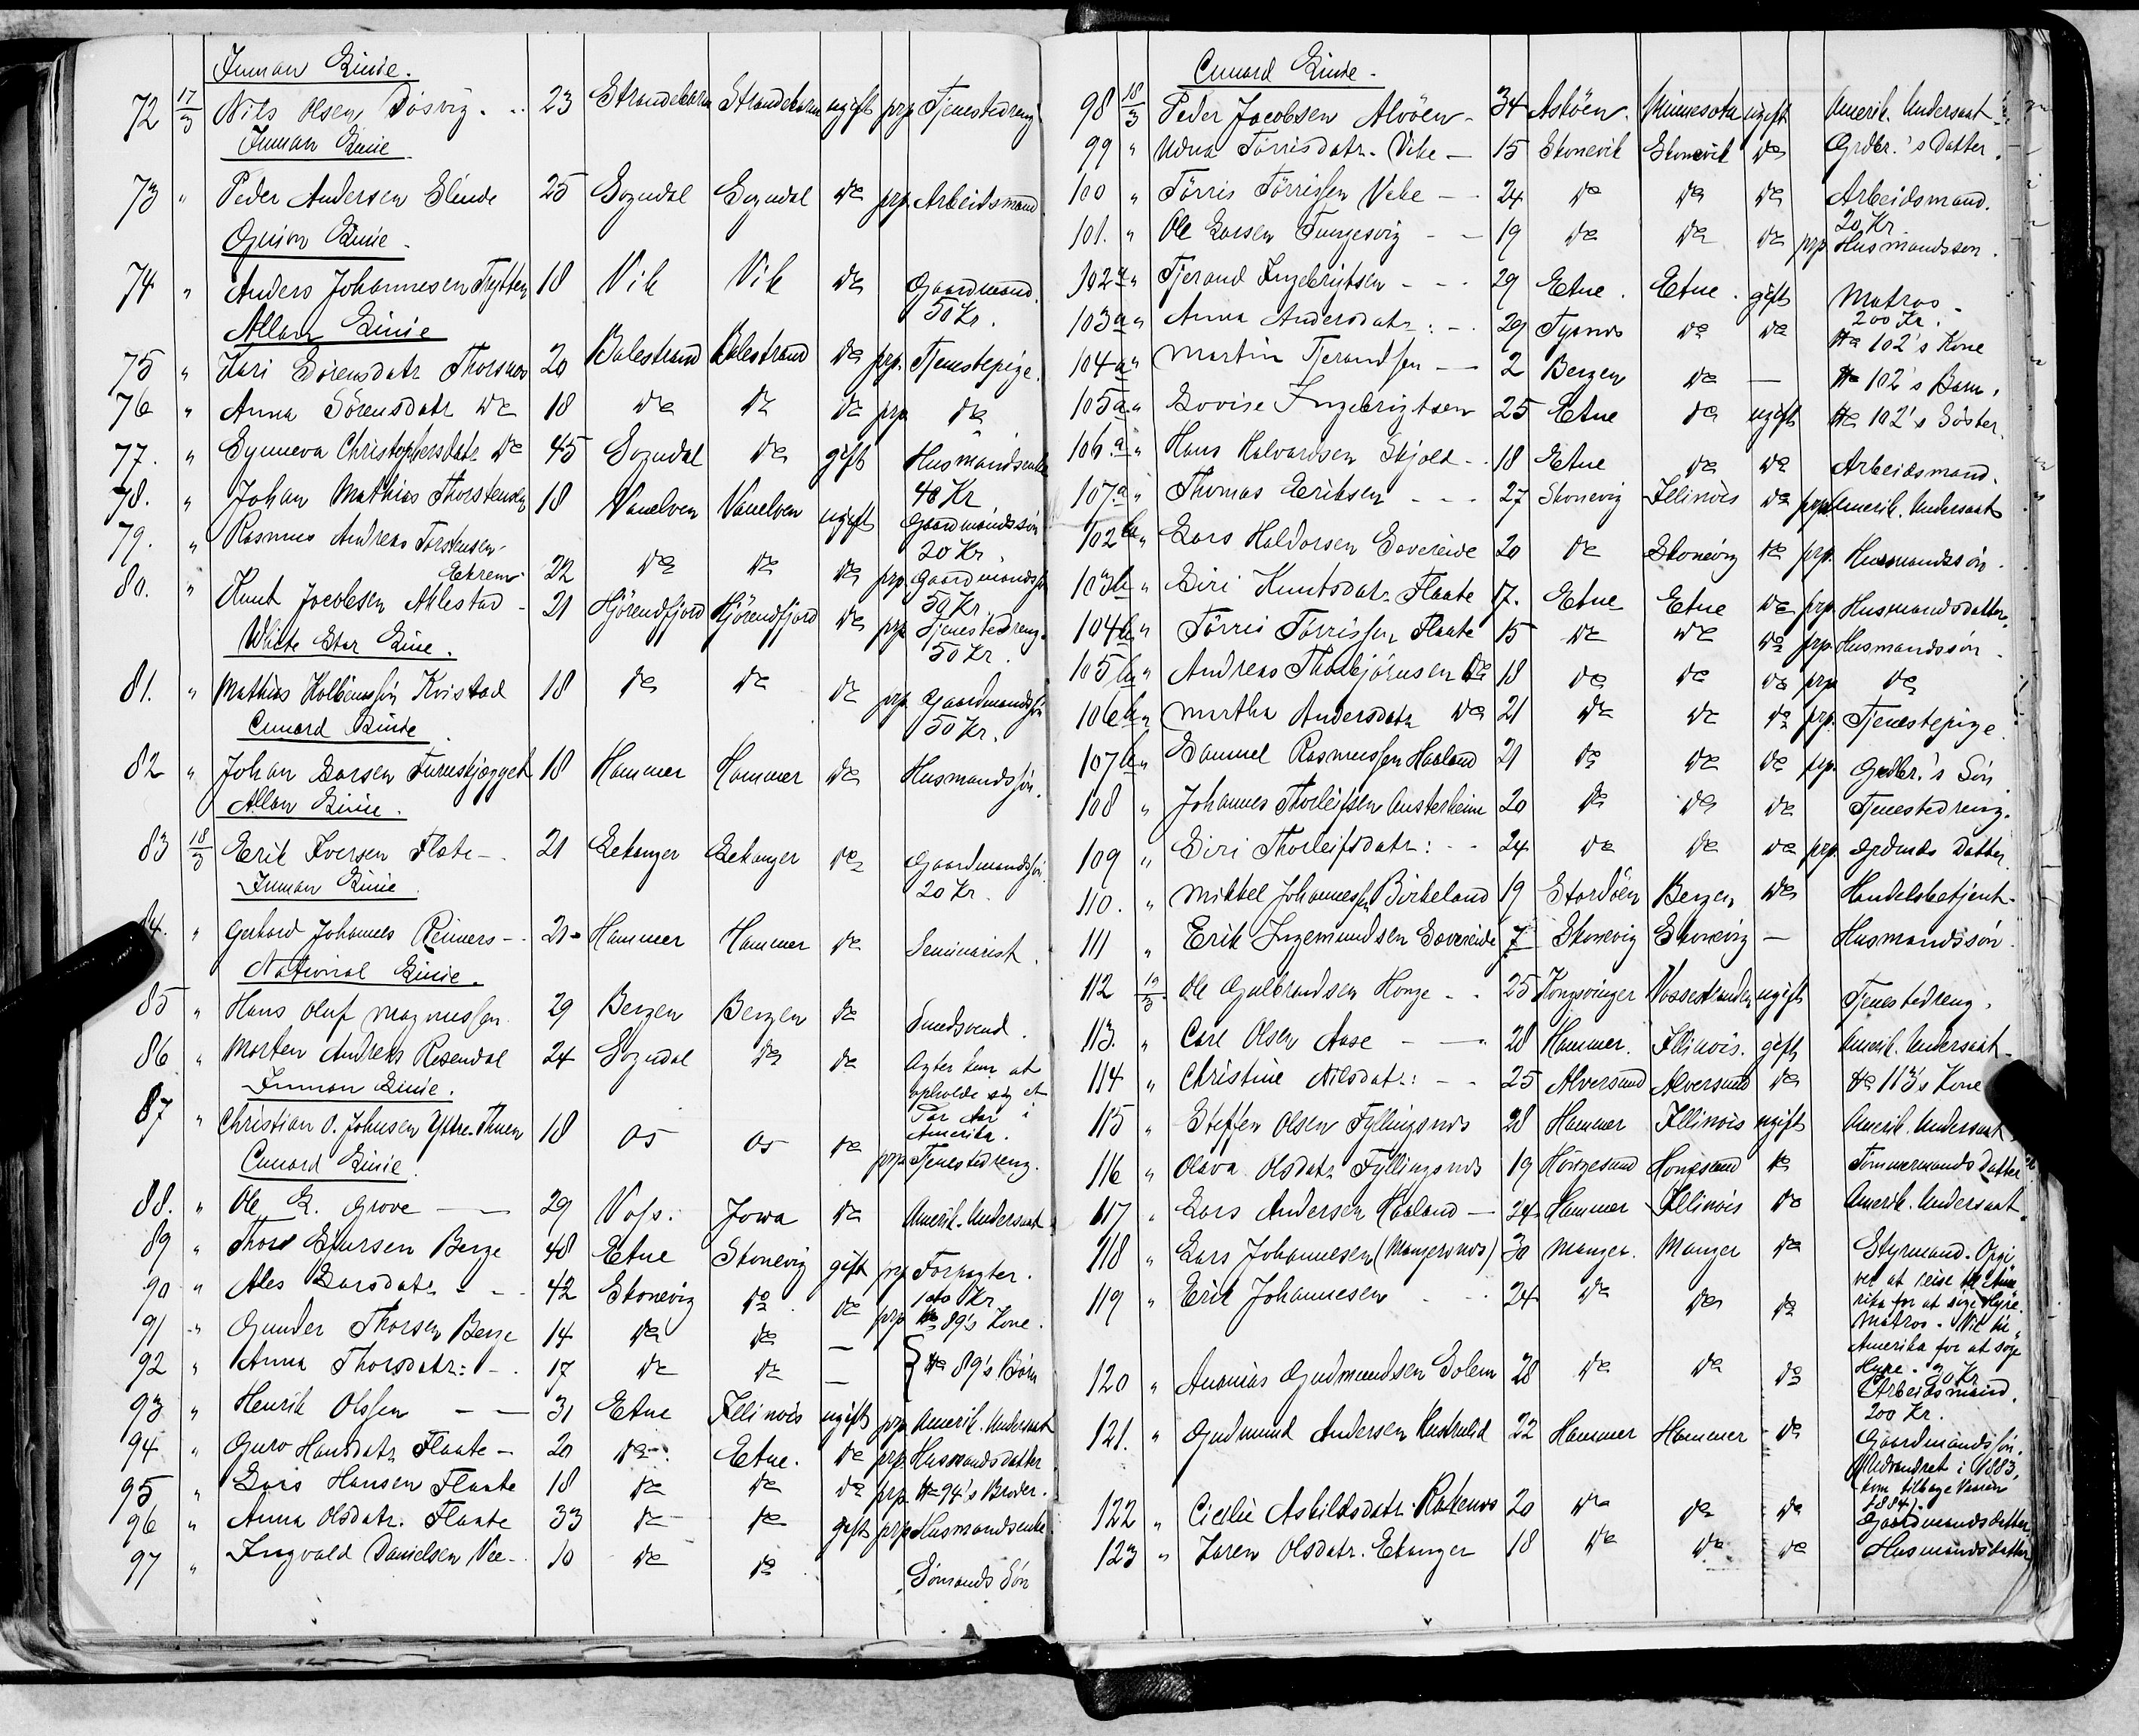 Inman Linie.
72 17/3 Nils Olsen Dösvig - 23 Strandebarm Strandebarm ugift prp Tjenestedreng
Inman Linie
73 " Peder Andersen Slinde 25 Sogndal Sogndal do prp. Arbeidsmand.
Guion Linie.
74 " Anders Johannesen Trytten 18 Vik Vik do Gaardmand.
50 Kr.
Allan Linie
75 " Kari Sörensdatr Thorsnes 20 Balestrand Balestrand do prp. Tjenestepige.
76 " Anna Sörensdatr do 18 do do do prp do
77. " Synneva Christophersdatr do 45 Sogndal do gift Husmandsenke
40 Kr
78. " Johan Mathias Thorstensen 18 Vanelven Vanelven ugift Gaardmandssön
20 Kr.
79. " Rasmus Andreas Torstensen
22 do do do prp. Gaardmandssön
50 Kr.
80. " Knut Jacobsen Aklestad - 21 Hjörendfjord Hjörendfjord do prp Tjenestedreng.
50 Kr.
White Star Line.
81. " Mathias Kolbeinssön Kvistad 18 do do do prp Gaardmandssön
50 Kr.
Cunard Linie
82 " Johan Larsen Furuskjægget 18 Hammer Hammer do Husmandssön.
Allan Linie.
83 18/3 Erik Iversen Flate - 21 Lekanger Lekanger do Gaardmandssön.
20 Kr.
Inman Linie.
84. " Gerhard Johannes Reimers - 21 Hammer Hammer do Seminarist.
National Linie.
85 " Hans Oluf Magnussen 29 Bergen Bergen do Smedsvend.
86 " Morten Andreas Rosendal 24 Sogndal do do Agter kun at
opholde sig et
Par Aar i
Amerika.
Inman Linie.
87 " Christian O. Johnsen Yttre-Thuen 18 Os Os do prp. Tjenestedreng.
Cunard Linie.
88. " Ole L. Grove - 29 Voss. Jowa do Amerik. Undersaat
89 " Thore Sjursen Berge 48 Etne Skonevig gift prp Forpagter.
100 Kr
90 " Ales Larsdatr - - 42 Skonevig do do prp No 89's Kone.
91 " Gunder Thorsen Berge 14 do do —
92 " Anna Thorsdatr: - 17 do do — } No 89's Börn
93 " Henrik Olssen - - 31 Etne Illinois ugift prp Amerik. Undersaat
94 " Guro Hansdatr Flaate - 20 do Etne. do prp Husmandsdatter
95 " Lars Hansen Flaate 18 do do do prp No 94's Broder.
96 " Anna Olsdatr. Flaate 33 do do gift prp Husmandsenke.
97 " Ingvald Danielsen Vee - 10 do do Sömands Sön
Cunard Linie.
98 18/3 Peder Jacobsen Alvöen - 34 Asköen. Minnesota ugift Amerik. Undersaat.
99 " Udna Törrisdatr. Vike - 15 Skonevik Skonevik do Grdbr.'s Datter.
100 " Törris Törrissen Vike - - 24 do do do Arbeidsmand.
20 Kr
101. " Ole Larsen Tungesvig - - 19 do do do prp Husmandssön.
102a " Tjerand Ingebrigtsen - - - 29 Etne. Etne. gift Matros -
200 Kr.
103a " Anna Andersdatr: - 29 Tysnes do do No 102's Kone
104a " Martin Tjerandsen - - 2 Bergen do — No 102's Barn.
105a " Lovise Ingebrigtsen 25 Etne do ugift No 102's Söster.
106.a " Hans Halvardsen Skjold - 18 Etne do do Arbeidsmand.
107a " Thomas Eriksen - - - 27 Skonevig Illinois do prp Amerik. Undersaat
102b " Lars Haldorsen Sævereide 20 do Skonevig do prp. Husmandssön.
103b " Siri Knutsdatr. Flaate 17. Etne Etne do prp. Husmandsdatter.
104b " Törris Törrissen Flaate 15 do do do prp. Husmandssön.
105b " Andreas Thorbjörnsen do 18 do do do prp do
106b " Martha Andersdatr do 21 do do do prp. Tjenestepige.
107b " Samuel Rasmussen Haaland 21 do do do prp. Grdbr.'s Sön
108 " Johannes Thorleifsen Austerheim 20 do do do Tjenestedreng.
109 " Siri Thorleifsdatr: - - 24 do do do prp. Grdmds Datter.
110. " Mikkel Johannessen Birkeland 19 Stordöen Bergen do Handelsbetjent.
111 " Erik Ingemundsen Sævereide 7 Skonevig Skonevig — Husmandssön.
112 19/3. Ole Gulbrandsen Honge - - 25 Kongsvinger Vossestranden ugift Tjenestedreng.
113. " Carl Olsen Aase - — 28 Hammer. Illinois. gift Amerik. Undersaat.
114 " Christine Nilsdatr: - - 25 Alversund Alversund do No 113's Kone
115 " Steffen Olsen Fyllingsnes 28 Hammer Illinois ugift Amerik. Undersaat
116 " Olava Olsdatr Fyllingsnes 19 do Tømmermands Datter
117 " Lars Andersen Haaland - 24 Hammer Illinois do Amerik. Undersaat.
118 " Lars Johannesen (Mangersnes) 30 Manger. Manger do Styrmand. Opgi,
ver at reise til Ame
rika for at söge Hyre.
119 " Erik Johannesen - - 24 do do do Matros. Vil til
Amerika for at söge
Hyre. 30 Kr
120 " Ananias Gudmundsen Solem 28 do do do Arbeidsmand.
200 Kr.
121. " Gudmund Andersen 22 Hammer Hammer do Gaardmandssön.
(Udvandret i 1883,
kom tilbage Vaaren
1884).
122 " Cicilie Askildsdatr. Raknes 20 do do do Gaardmandsdatter
123 " Karen Olsdatr. Ekanger 18 do do do Husmandsdatter